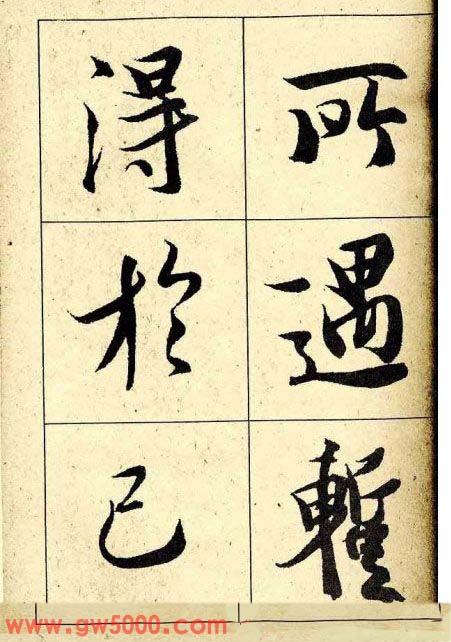 所遇暫
得於己
www.gw5000.com